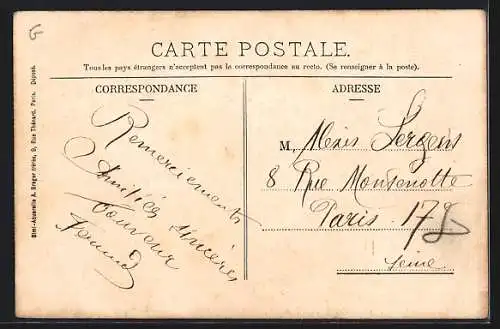 G
CARTE POSTALE.
Tous les pays étrangers n'acceptent pas la correspondance au recto. (Se renseigner à la poste).
CORRESPONDANCE
Remerciements
Amitiés sincères
ADRESSE
M. Alexis Sergent
8 Rue Montenotte
Paris. 17e
Seine
Simi-Aquarelle A. Breger frères, 9, Rue Thénard, Paris. Déposé.